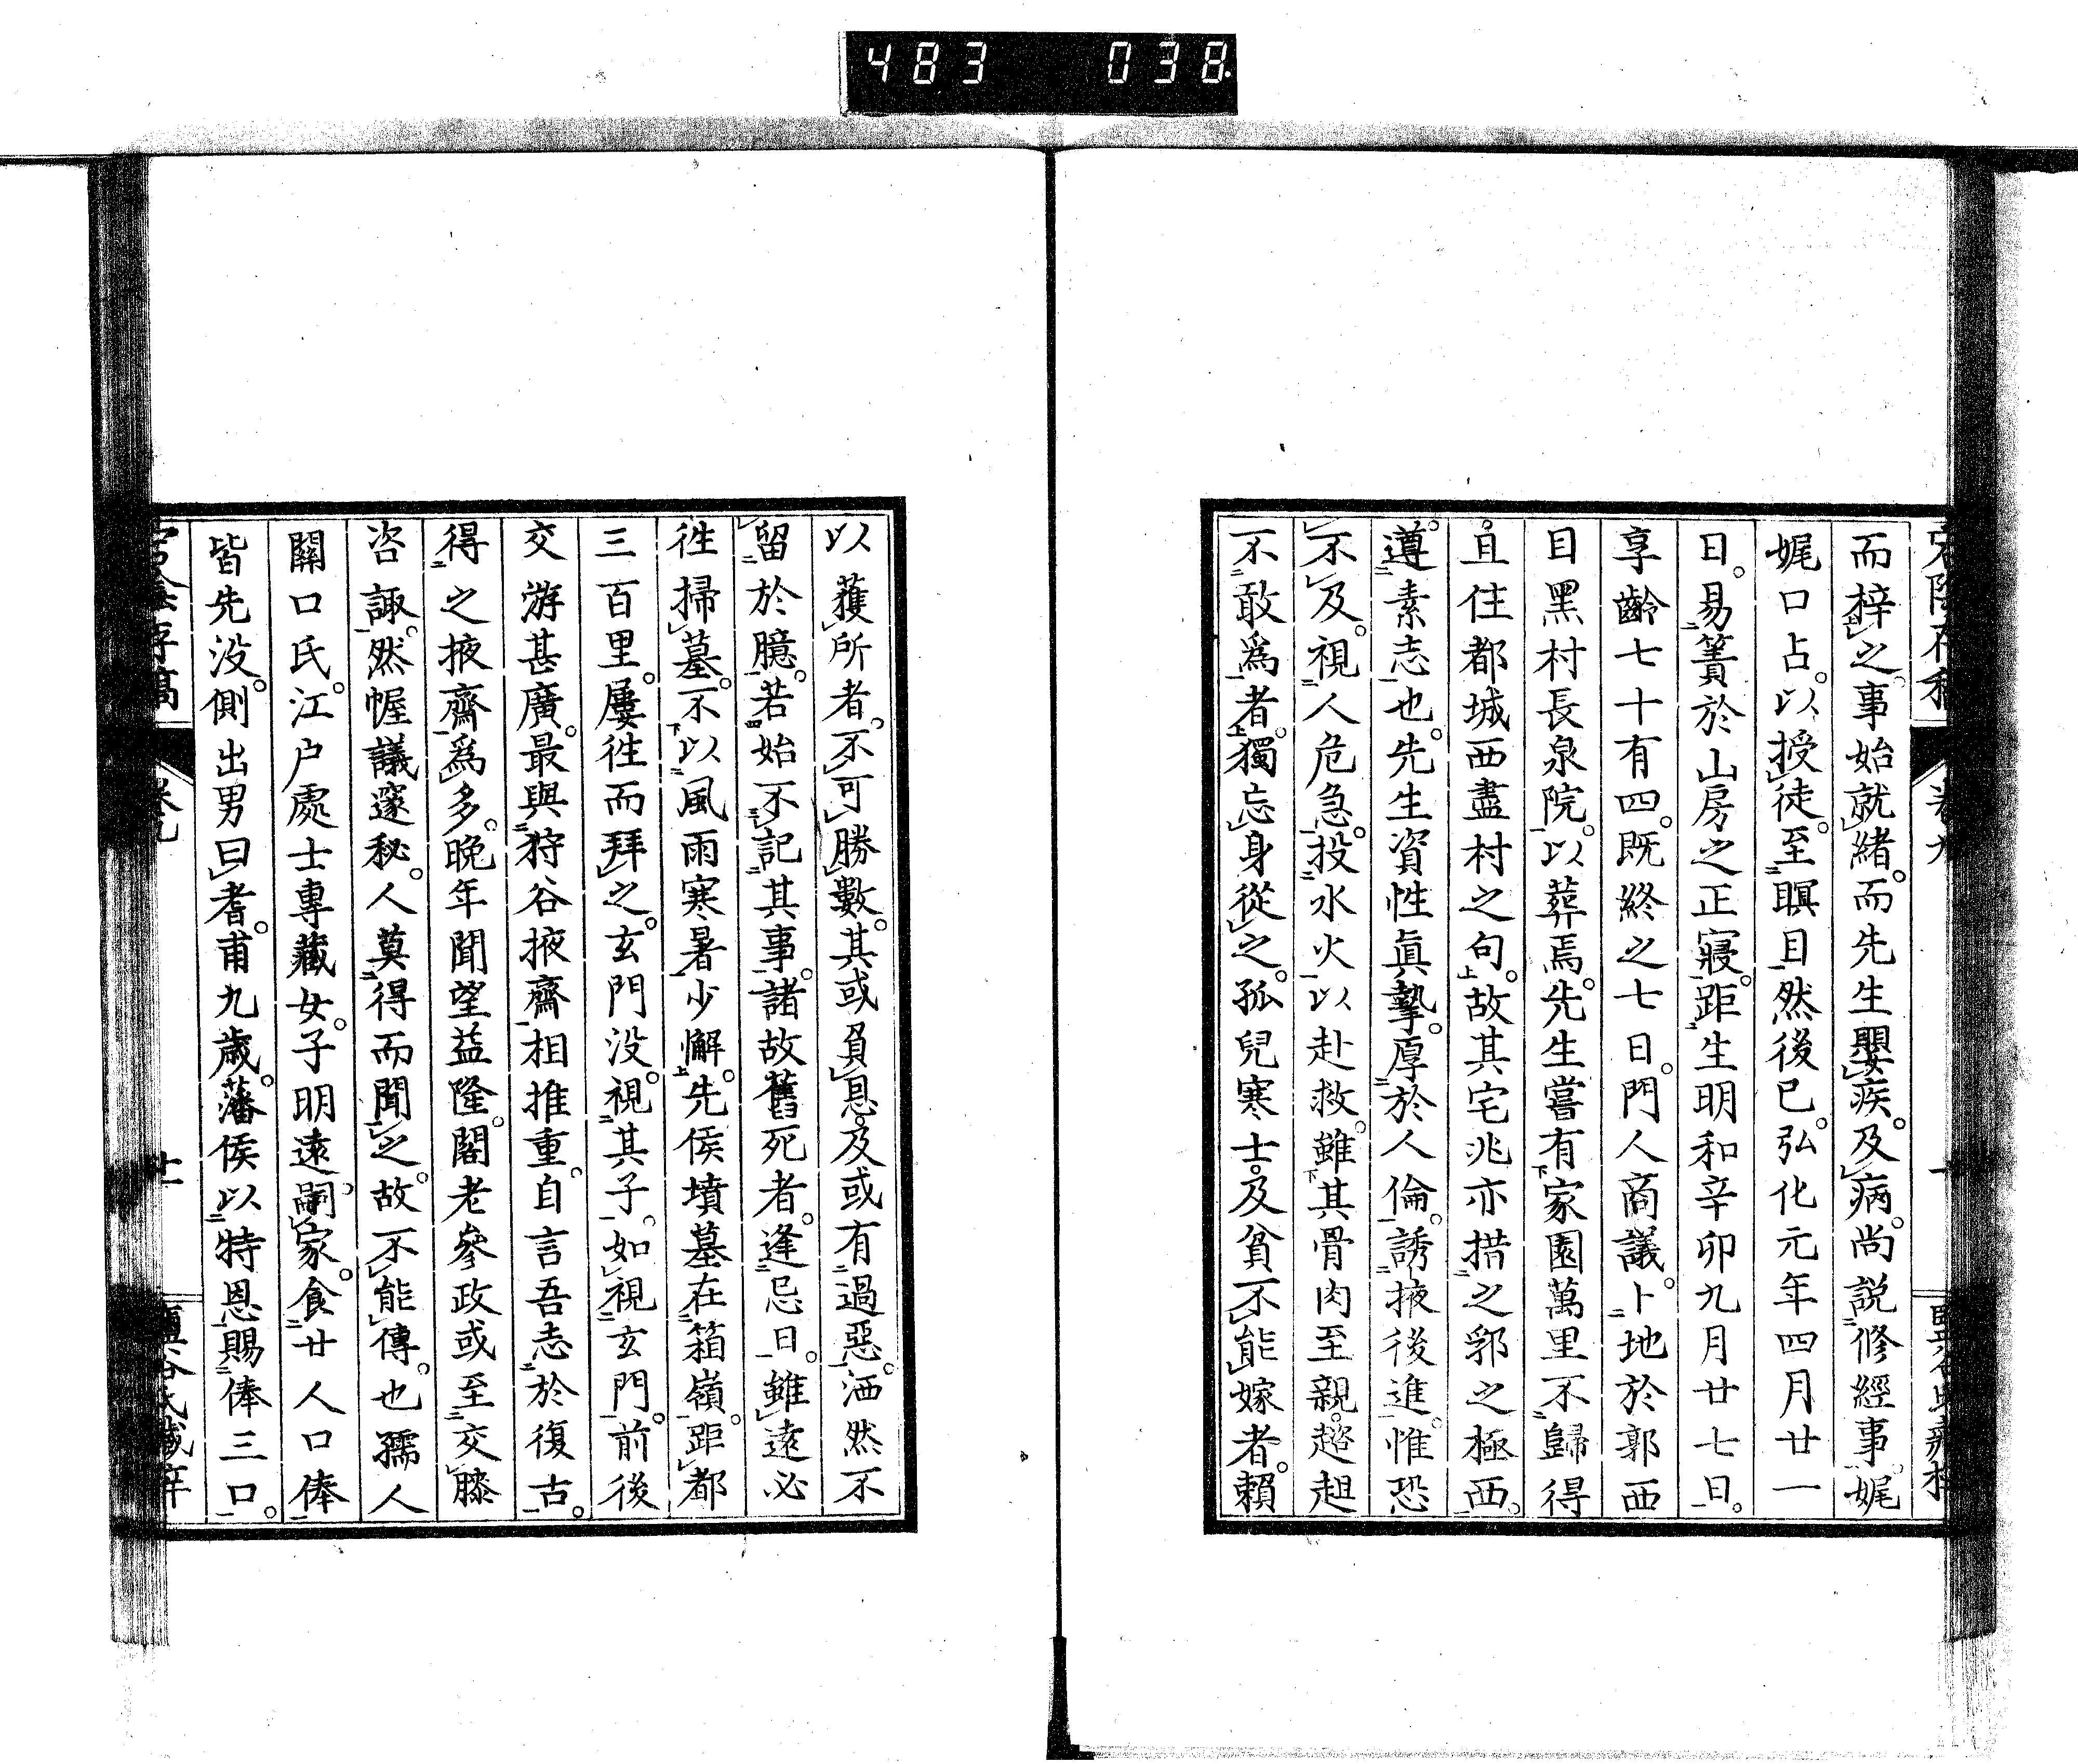 483 038
而梓之事始就緒。而先生嬰疾。及病。尚説修經事。娓
娓口占。以授徒。至瞑目然後已。弘化元年四月廿一
日。易簀於山房之正寢。距生明和辛卯九月廿七日。
享齡七十有四。既終之七日。門人商議。卜地於郭西
目黑村長泉院。以葬焉。先生嘗有家園萬里不歸得
且住都城西盡村之句。故其宅兆亦措之郭之極西。
遵素志也。先生資性眞摯。厚於人倫。誘掖後進。惟恐
不及。視人危急。投水火以赴救。雖其骨肉至親。趦趄
不敢爲者。獨忘身從之。孤兒寒士。及貧不能嫁者。賴
以獲所者。不可勝數。其或負恩。及或有過惡。洒然不
留於臆。若始不記其事。諸故舊死者。逢忌日。雖遠必
徃掃墓。不以風雨寒暑少懈。先侯墳墓在箱嶺。距都
三百里。屢徃而拜之。玄門没。視其子。如視玄門。前後
交游甚廣。最與狩谷掖齋相推重。自言吾志於復古。
得之掖齋爲多。晩年聞望益隆。閣老參政或至交膝
咨諏。然幄議邃秘。人莫得而聞之。故不能傳也。孺人
關口氏。江戸處士專藏女。子明遠。嗣家。食廿人口俸
皆先没。側出男曰耆。甫九歳。藩侯以特恩賜俸三口。